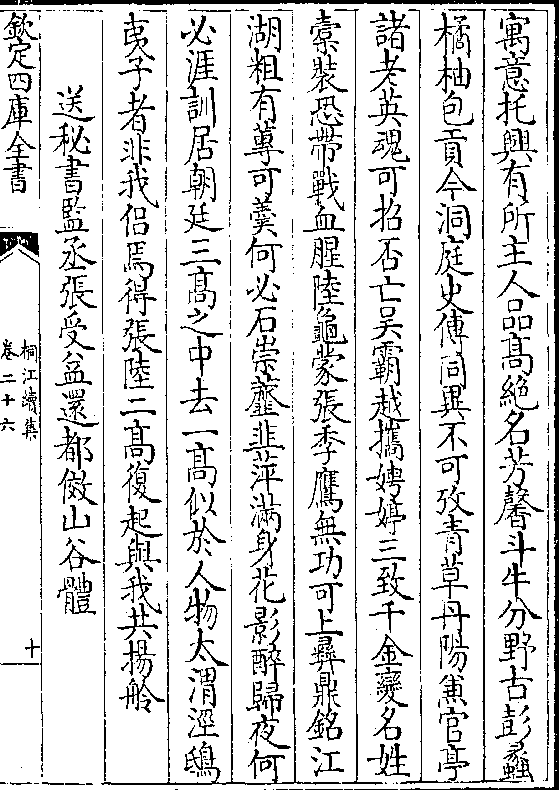 寓意托興有所主人品高絶名芳馨斗牛分野古彭蠡
橘柚包貢今洞庭史傳同異不可攷青草丹陽兼官亭
諸老英魂可招否亡吴霸越攜娉婷三致千金變名姓
槖裝恐帶戰血腥陸龜蒙張季鷹無功可上彞鼎銘江
湖粗有蓴可羮何必石崇虀韭蓱滿身花影醉歸夜何
必涯訓居朝廷三髙之中去一髙似於人物太渭涇鴟
夷子者非我侣焉得張陸二髙復起與我共揚舲
送秘書監丞張受益還都倣山谷體
欽定四庫全書
桐江續集
卷二十六
十